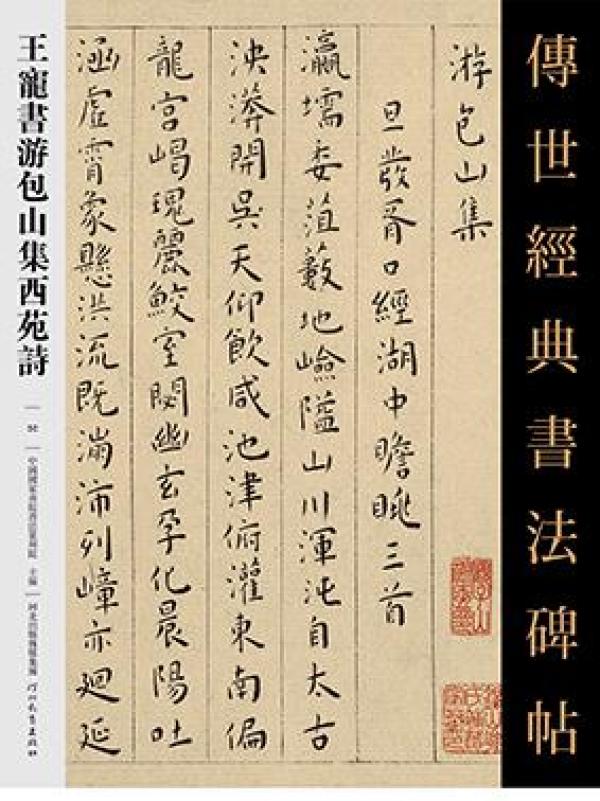 傳世經典書法碑帖
游包山集
旦發胥口經湖中瞻眺三首
瀛壖委菹藪地嶮隘山川渾沌自太古
泱漭開吳天仰飲咸池津俯灌東南偏
龍宮嵑瑰麗鮫室閟幽玄孕化晨陽吐
涵虛霄象懸洪流既滿沛列嶂亦迴延
王寵書游包山集西苑詩
主編
河北出版傳媒集團
河北教育出版社